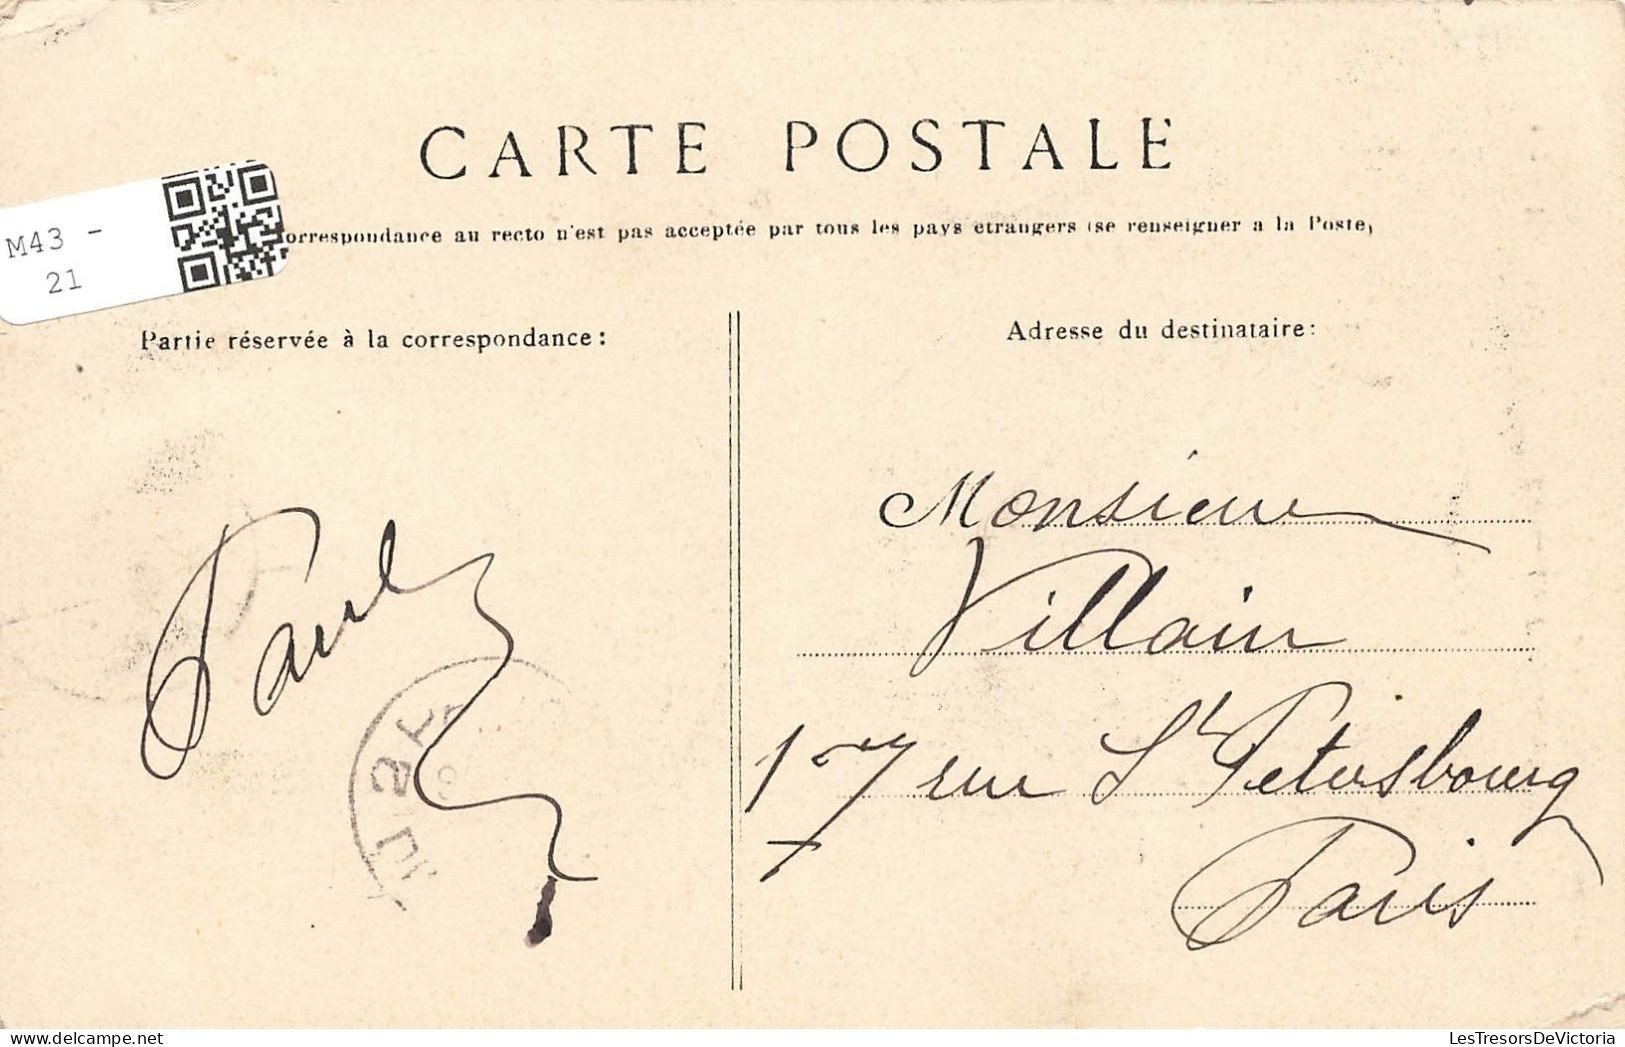 CARTE POSTALE
M43 -
21
orrespondance au recto n'est pas acceptée par tous les pays etrangers (se renseigner a la Poste)
Partie réservée à la correspondance :
Adresse du destinataire:
Paul
Monsieur
Villain
17 rue St Petersbourg
Paris
LesTresorsDeVictoria
delcampe.net